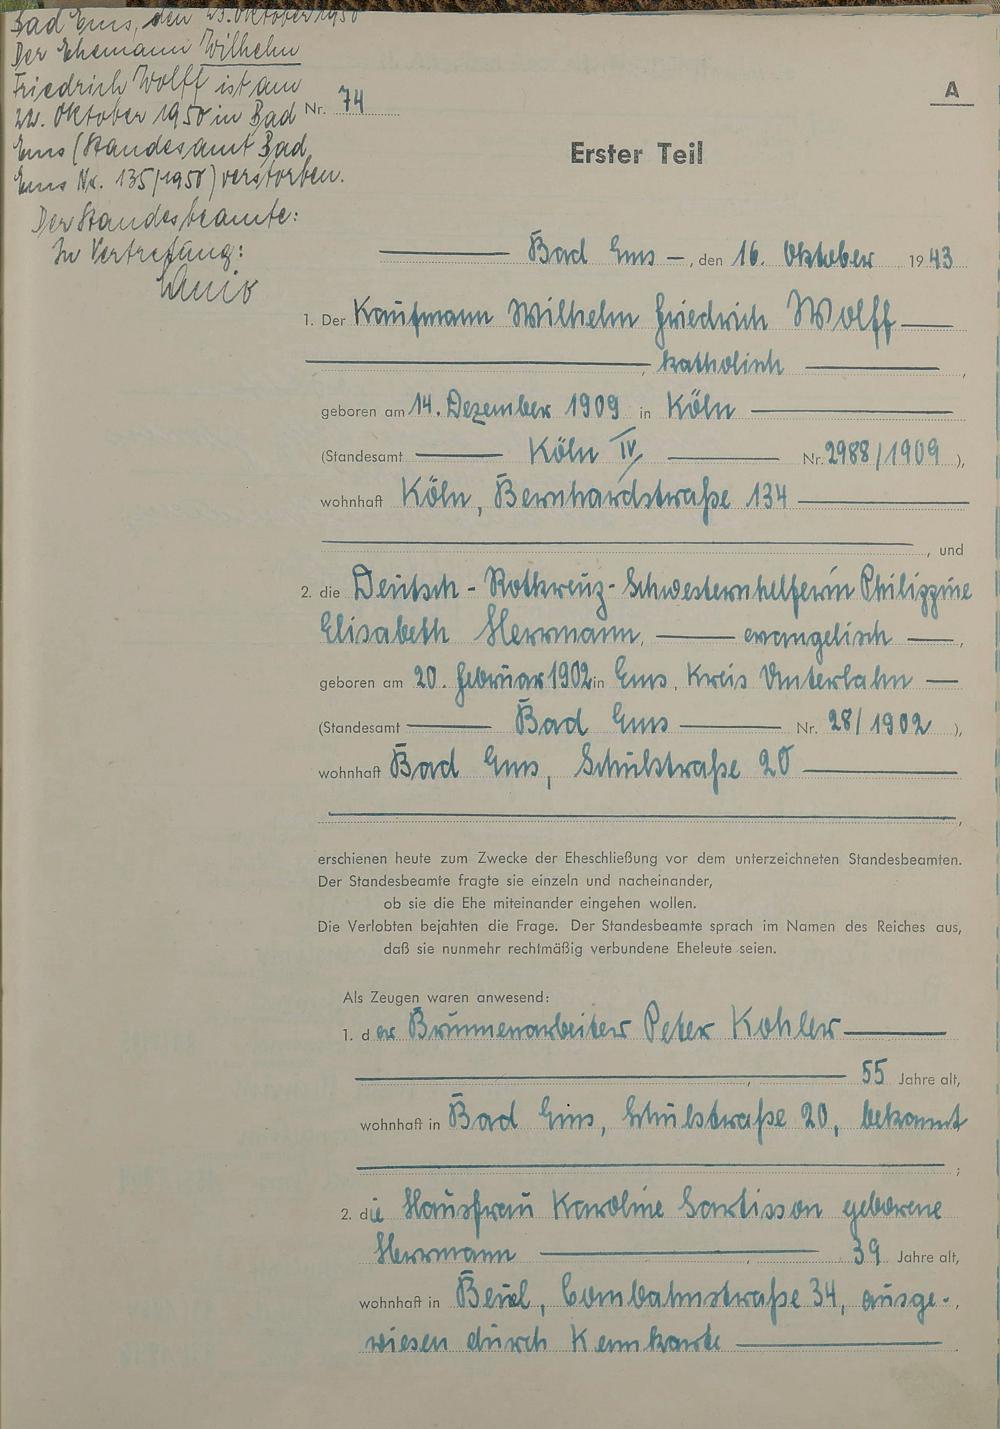 Bad Ems, den 23. Oktober 1950
Der Ehemann Wilhelm
Friedrich Wolff ist am
22. Oktober 1950 in Bad
Ems (Standesamt Bad
Ems Nr. 135/1950) verstorben.
Der Standesbeamte:
In Vertretung:
Nr. 74
A
Erster Teil
Bad Ems, den 16. Oktober 1943
1. Der Kaufmann Wilhelm Friedrich Wolff
, katholisch ,
geboren am 14. Dezember 1909 in Köln
(Standesamt Köln IV Nr. 2988/1909 ),
wohnhaft Köln, Bernhardstraße 134
, und
2. die Deutsch-Rotkreuz-Schwesternhelferin Philippine
Elisabeth Herrmann, evangelisch ,
geboren am 20. Februar 1902 in Ems, Kreis Unterlahn
(Standesamt Bad Ems Nr. 28/1902 ),
wohnhaft Bad Ems, Schulstraße 20
,
erschienen heute zum Zwecke der Eheschließung vor dem unterzeichneten Standesbeamten.
Der Standesbeamte fragte sie einzeln und nacheinander,
ob sie die Ehe miteinander eingehen wollen.
Die Verlobten bejahten die Frage. Der Standesbeamte sprach im Namen des Reiches aus,
daß sie nunmehr rechtmäßig verbundene Eheleute seien.
Als Zeugen waren anwesend:
1. der Brunnenarbeiter Peter Kohler
, 55 Jahre alt,
wohnhaft in Bad Ems, Schulstraße 20, bekannt
;
2. die Hausfrau Karoline Sartisson geborene
Herrmann , 39 Jahre alt,
wohnhaft in Beuel, Combahnstraße 34, ausge-,
wiesen durch Kennkarte